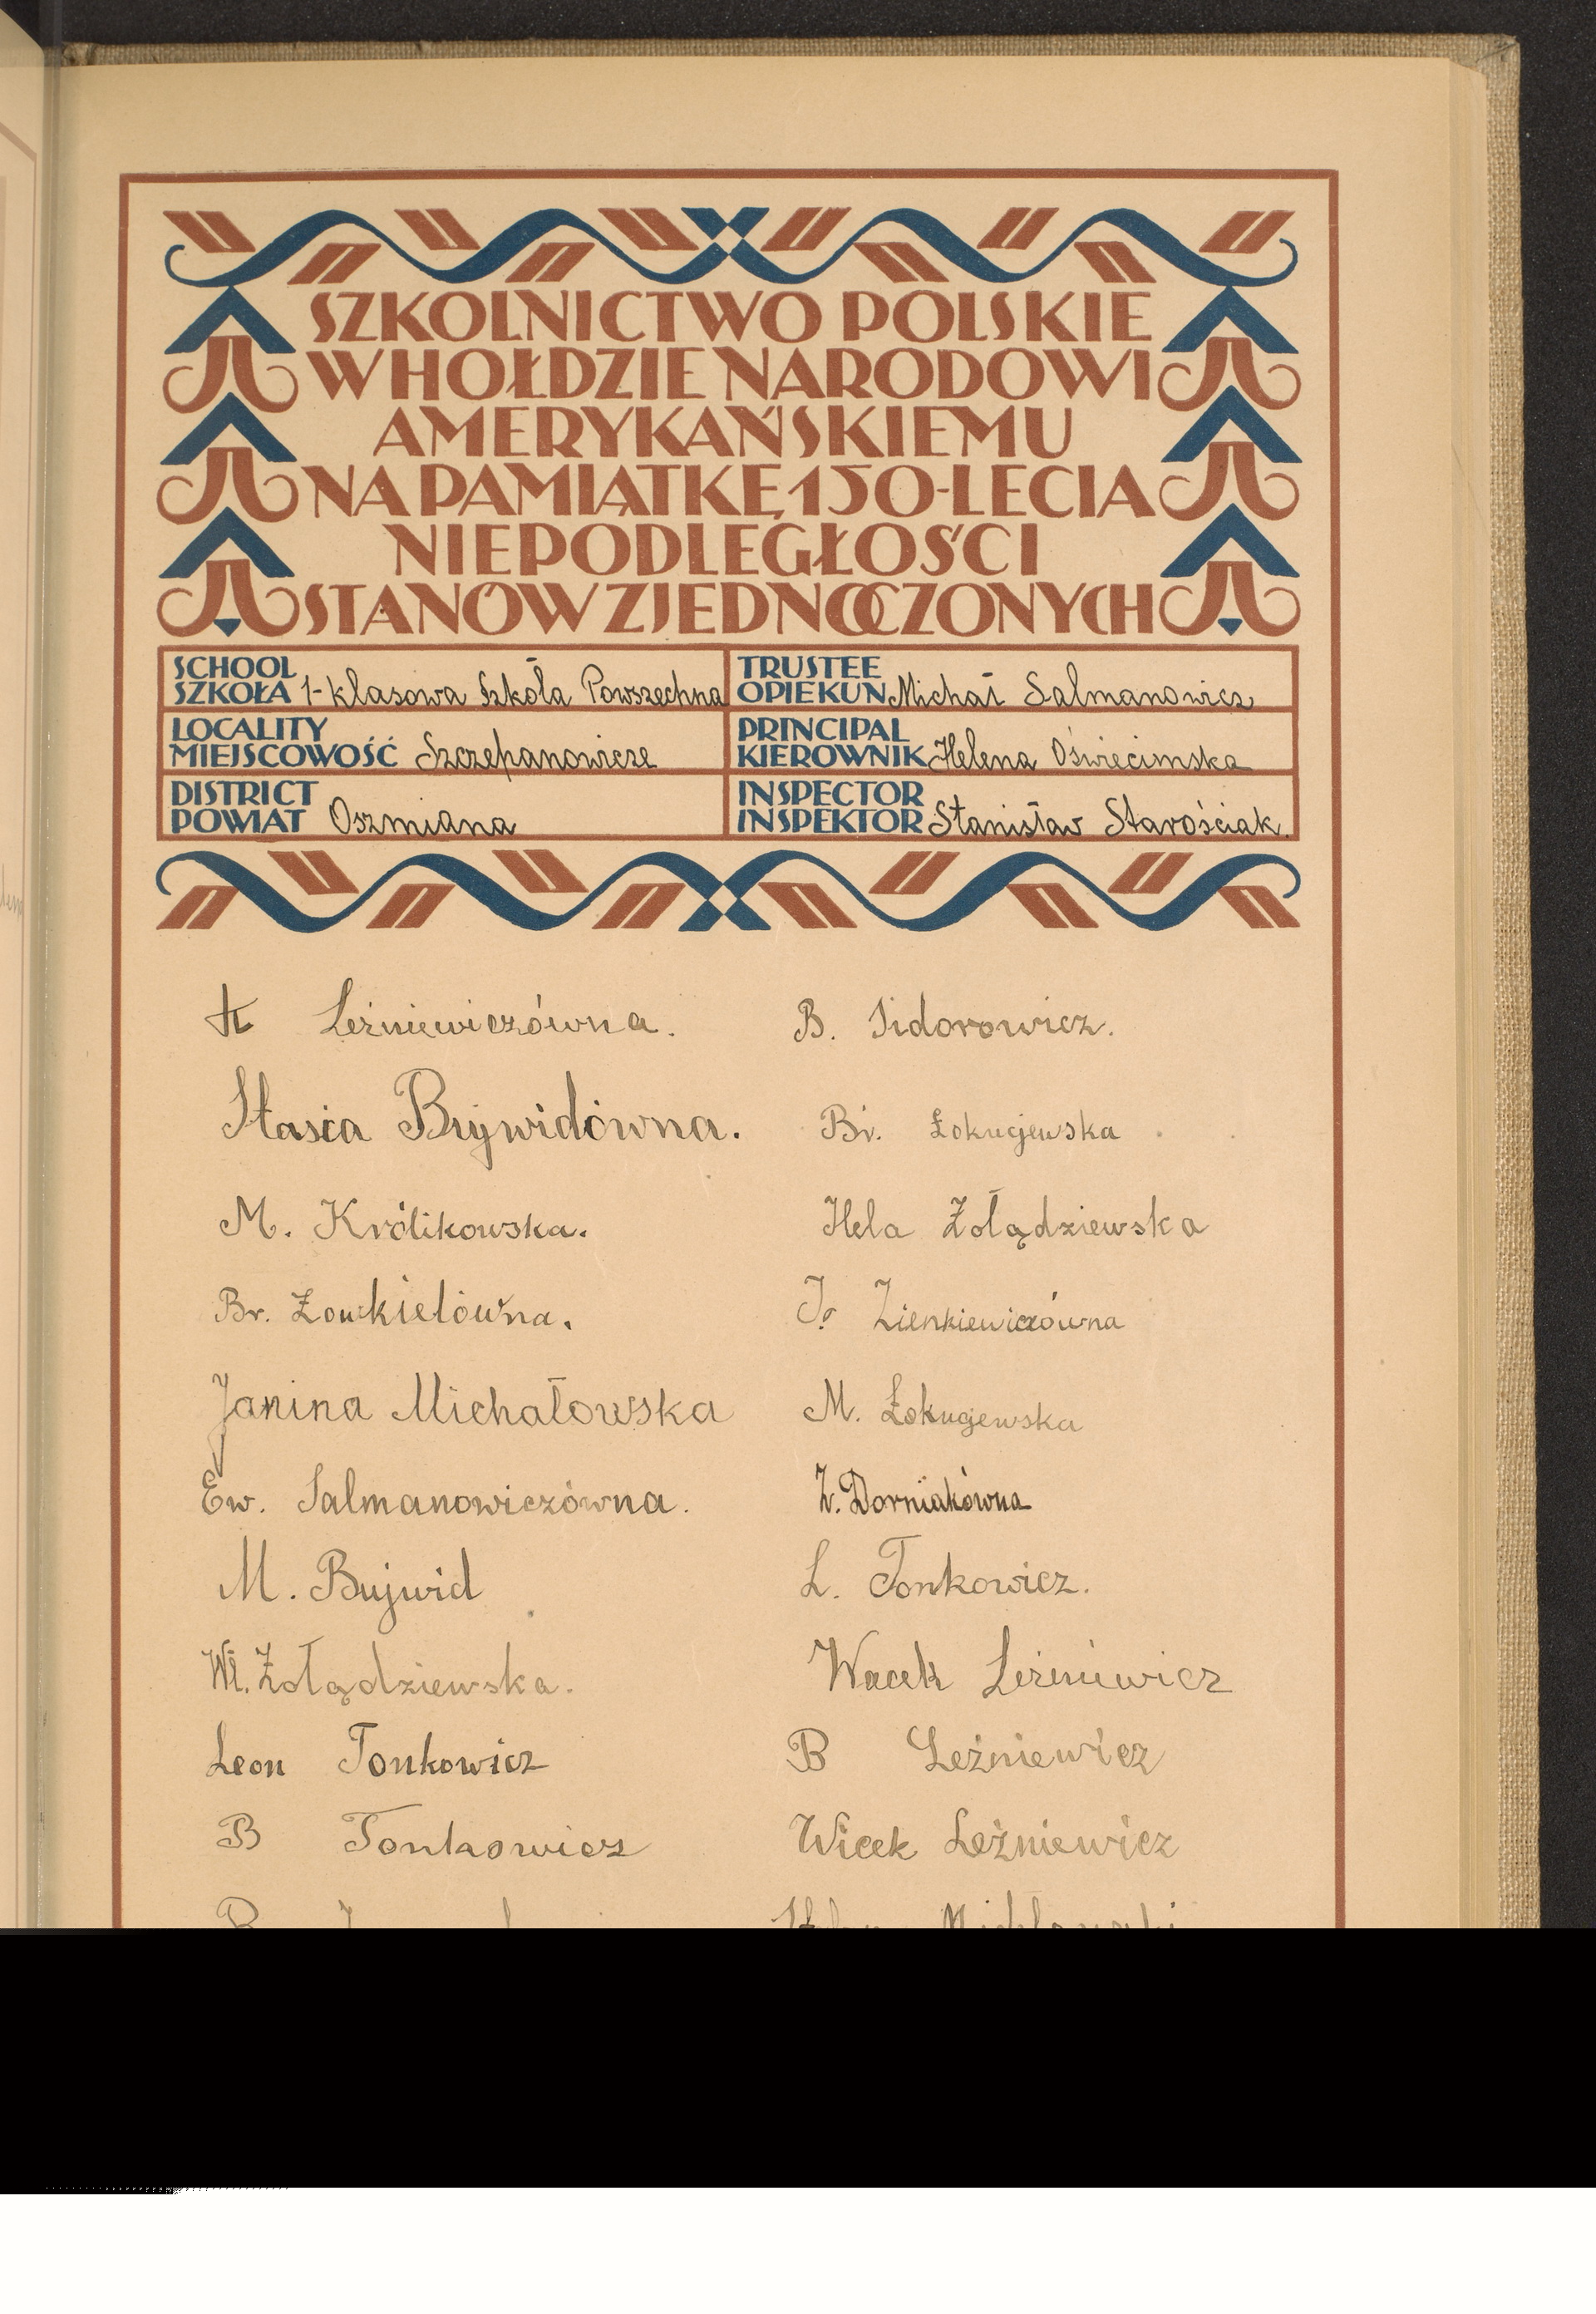 SZKOLNICTWO POLSKIE
W HOŁDZIE NARODOWI
AMERYKAŃSKIEMU
NA PAMIĄTKĘ 150-LECIA
NIEPODLEGŁOŚCI
STANÓW ZJEDNOCZONYCH
SCHOOL
SZKOŁA 1-klasowa Szkoła Powszechna
TRUSTEE
OPIEKUN Michał Salmanowicz
LOCALITY
MIEJSCOWOŚĆ Szczepanowicze
PRINCIPAL
KIEROWNIK Helena Oświecimska
DISTRICT
POWIAT Oszmiana
INSPECTOR
INSPEKTOR Stanisław Starościak.
Leżniewiczówna.
Stasia Bujwidówna.
M. Królikowska.
Br. Żowkielówna.
Janina Michałowska
Ew. Salmanowiczówna.
M. Bujwid
Wł. Żołądziewska.
Leon Tonkowicz
B Tonkowicz
B. Sidorowicz.
Br. Łokujewska
Hela Żołądziewska
Zienkiewiczówna
M. Łokujewska
Z. Dorniakówna
L. Tonkowicz.
Wacek Leżniewicz
B Leżniewicz
Wicek Leżniewicz